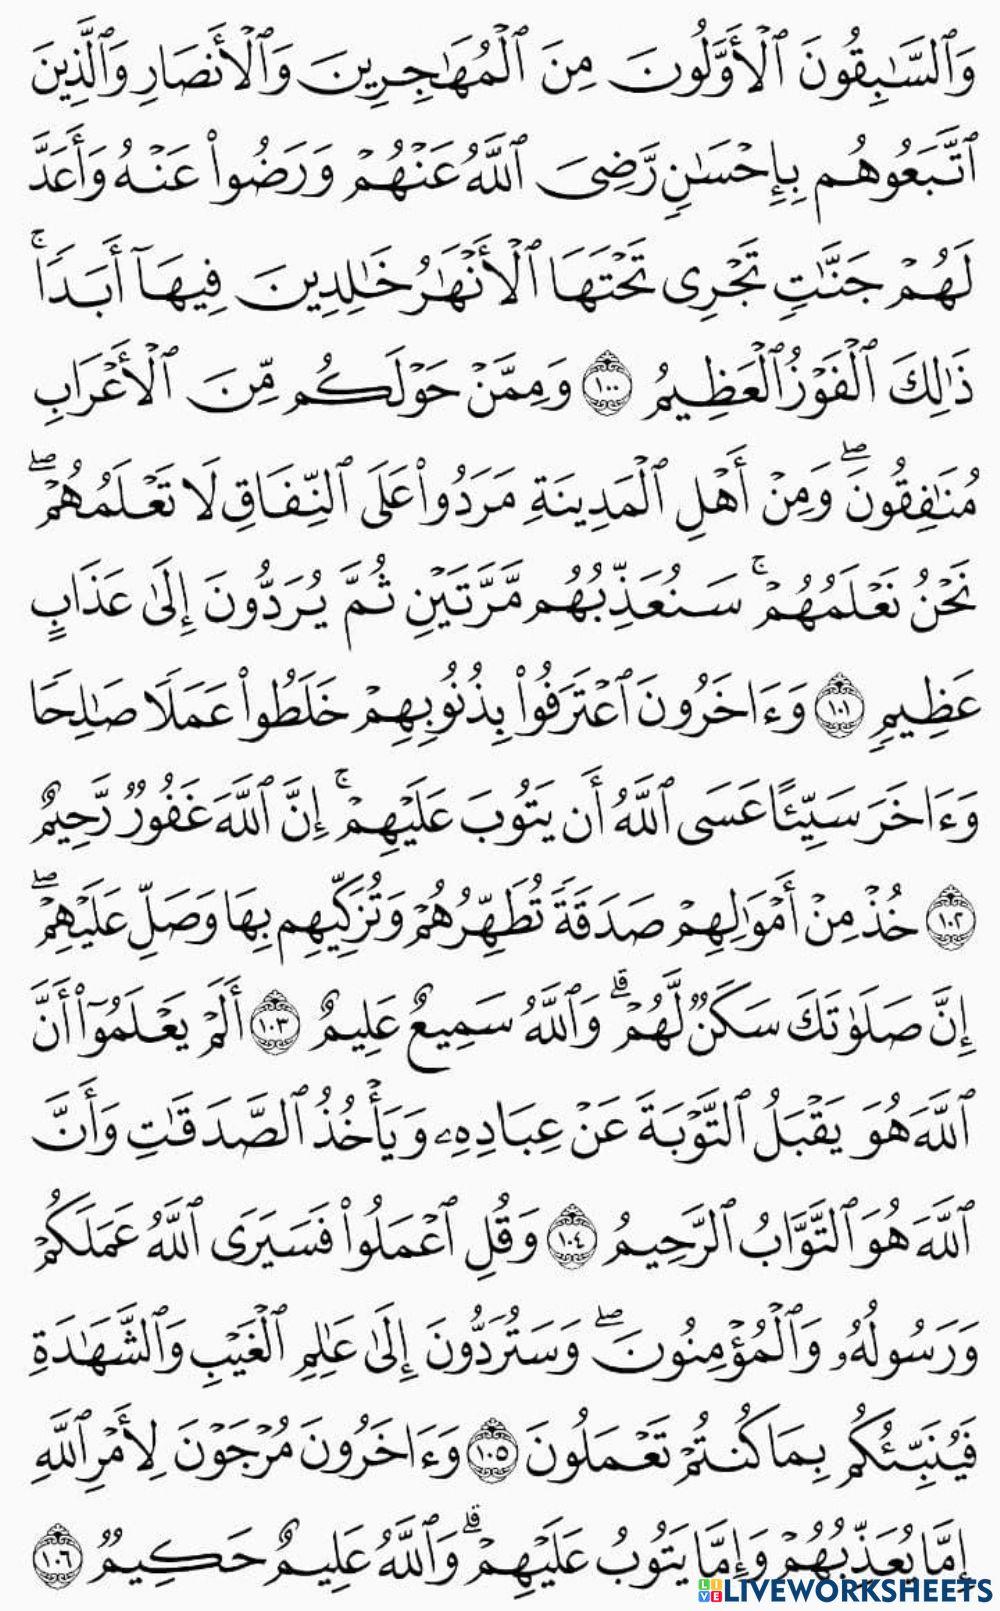 وَٱلسَّٰبِقُونَ ٱلۡأَوَّلُونَ مِنَ ٱلۡمُهَٰجِرِينَ وَٱلۡأَنصَارِ وَٱلَّذِينَ
ٱتَّبَعُوهُم بِإِحۡسَٰنٖ رَّضِيَ ٱللَّهُ عَنۡهُمۡ وَرَضُواْ عَنۡهُ وَأَعَدَّ
لَهُمۡ جَنَّٰتٖ تَجۡرِي تَحۡتَهَا ٱلۡأَنۡهَٰرُ خَٰلِدِينَ فِيهَآ أَبَدٗاۚ
ذَٰلِكَ ٱلۡفَوۡزُ ٱلۡعَظِيمُ ١٠٠ وَمِمَّنۡ حَوۡلَكُم مِّنَ ٱلۡأَعۡرَابِ
مُنَٰفِقُونَۖ وَمِنۡ أَهۡلِ ٱلۡمَدِينَةِ مَرَدُواْ عَلَى ٱلنِّفَاقِ لَا تَعۡلَمُهُمۡۖ
نَحۡنُ نَعۡلَمُهُمۡۚ سَنُعَذِّبُهُم مَّرَّتَيۡنِ ثُمَّ يُرَدُّونَ إِلَىٰ عَذَابٍ
عَظِيمٖ ١٠١ وَءَاخَرُونَ ٱعۡتَرَفُواْ بِذُنُوبِهِمۡ خَلَطُواْ عَمَلٗا صَٰلِحٗا
وَءَاخَرَ سَيِّئًا عَسَى ٱللَّهُ أَن يَتُوبَ عَلَيۡهِمۡۚ إِنَّ ٱللَّهَ غَفُورٞ رَّحِيمٌ
١٠٢ خُذۡ مِنۡ أَمۡوَٰلِهِمۡ صَدَقَةٗ تُطَهِّرُهُمۡ وَتُزَكِّيهِم بِهَا وَصَلِّ عَلَيۡهِمۡۖ
إِنَّ صَلَوٰتَكَ سَكَنٞ لَّهُمۡۗ وَٱللَّهُ سَمِيعٌ عَلِيمٌ ١٠٣ أَلَمۡ يَعۡلَمُوٓاْ أَنَّ
ٱللَّهَ هُوَ يَقۡبَلُ ٱلتَّوۡبَةَ عَنۡ عِبَادِهِۦ وَيَأۡخُذُ ٱلصَّدَقَٰتِ وَأَنَّ
ٱللَّهَ هُوَ ٱلتَّوَّابُ ٱلرَّحِيمُ ١٠٤ وَقُلِ ٱعۡمَلُواْ فَسَيَرَى ٱللَّهُ عَمَلَكُمۡ
وَرَسُولُهُۥ وَٱلۡمُؤۡمِنُونَۖ وَسَتُرَدُّونَ إِلَىٰ عَٰلِمِ ٱلۡغَيۡبِ وَٱلشَّهَٰدَةِ
فَيُنَبِّئُكُم بِمَا كُنتُمۡ تَعۡمَلُونَ ١٠٥ وَءَاخَرُونَ مُرۡجَوۡنَ لِأَمۡرِ ٱللَّهِ
إِمَّا يُعَذِّبُهُمۡ وَإِمَّا يَتُوبُ عَلَيۡهِمۡۗ وَٱللَّهُ عَلِيمٌ حَكِيمٞ ١٠٦
LIVE LIVEWORKSHEETS